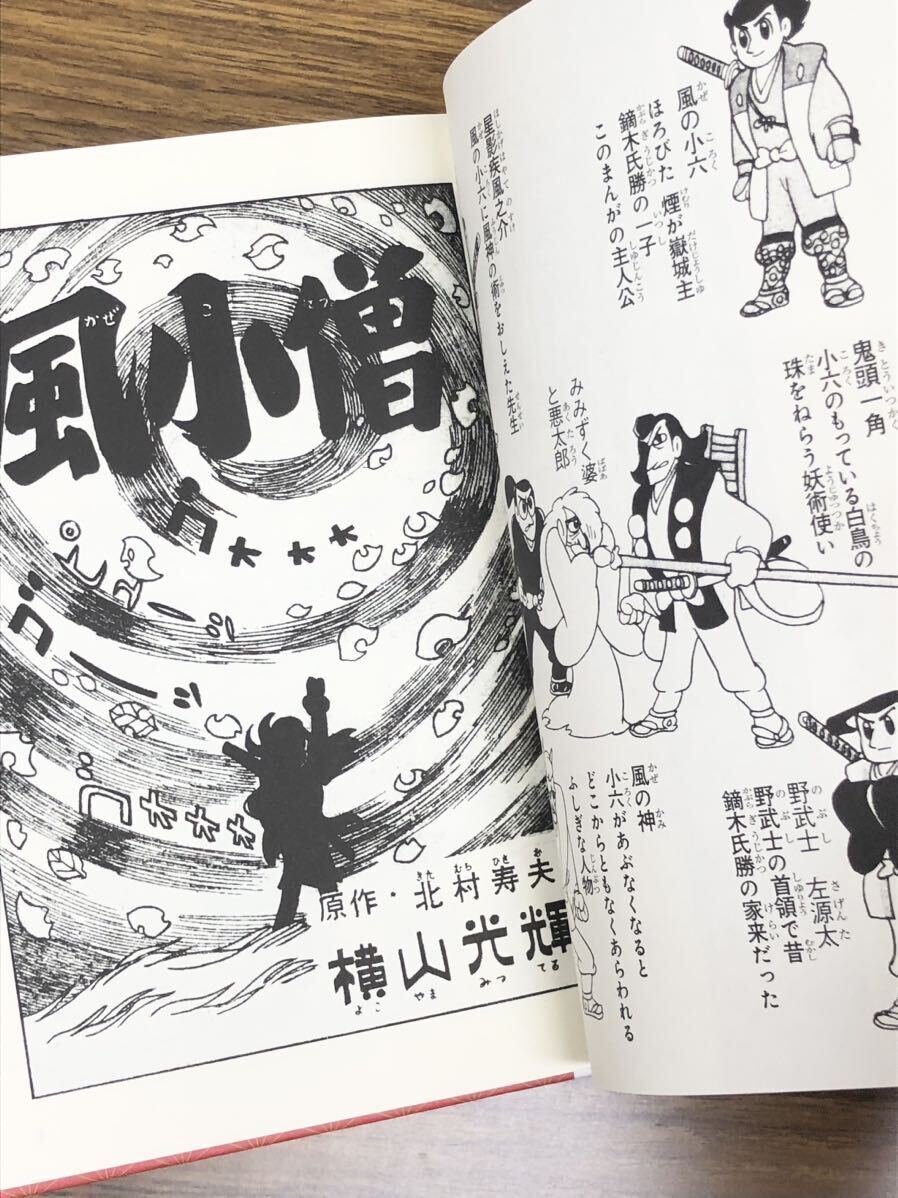 風の小六
ほろびた 煙が嶽城主
鏑木氏勝の一子
このまんがの主人公
星影疾風之介
風の小六に風神の術をおしえた先生
鬼頭一角
小六のもっている白鳥の
珠をねらう妖術使い
みみずく婆
と悪太郎
野武士 左源太
野武士の首領で昔
鏑木氏勝の家来だった
風の神
小六があぶなくなると
どこからともなくあらわれる
ふしぎな人物
風小僧
ゴォォォ
ゴーッ
ゴォォォォ
原作・北村寿夫
横山光輝
よこ やま みつ てる